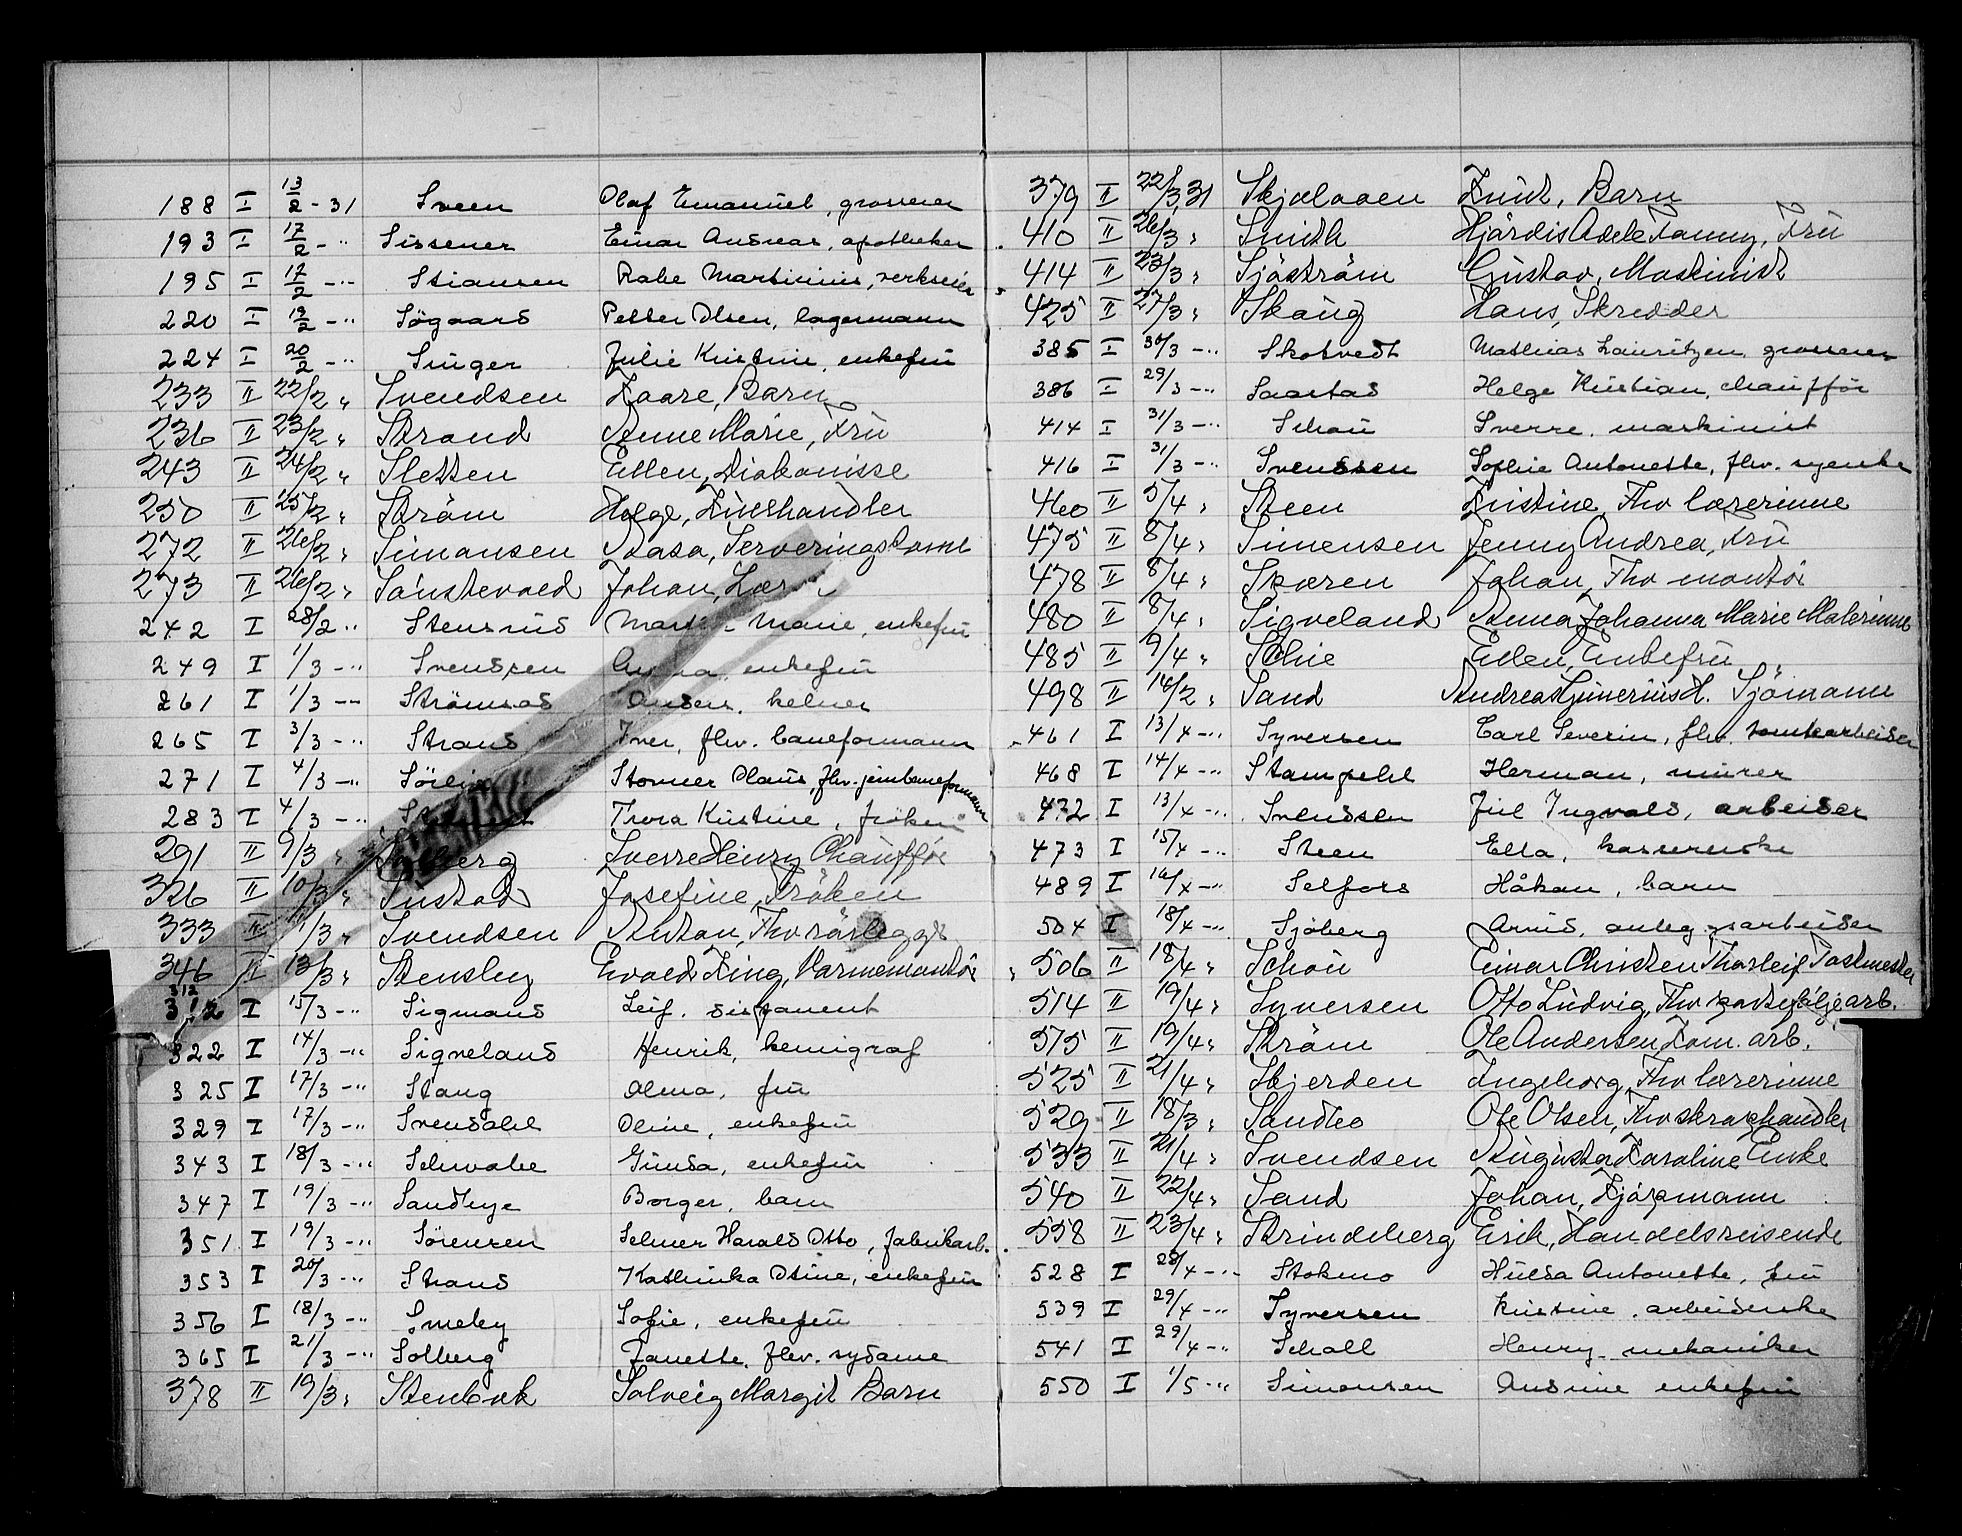 188 I 13/2 - 31 Sveen Olaf Emanuel, grosserer
193 I 17/2 - " Sissener Einar Andreas, apotheker
195 I 17/2 - " Stiansen Rabe Martinius, verkseier
220 I 19/2 - " Søgaard Petter Olsen, lagermann
224 I 20/2 - " Singer Julie Kristine, enkefru
233 II 22/2 " Svendsen Kaare, Barn
236 II 23/2 " Strand Anne Marie, Fru
243 II 24/2 " Sletten Ellen, Diakonisse
250 II 25/2 " Strøm Helge, Kulshandler
272 II 26/2 " Simonsen Aasa, Serveringsdame
273 II 26/2 " Sønstevold Johan,
242 I 28/2 " Stensrud Marie, enkefru
249 I 1/3 - " Svendsen enkefru
261 I 1/3 - " Strømsod Anders, kelner
265 I 3/3 - " Strand Iver, fhv. baneformann
271 I 4/3 - " Størmer Olaus, fhv. jernbaneformann
283 I 4/3 - " Thora Kristine, frøken
291 II 9/3 " Sverre Henry Chauffør
326 II 10/3 " Sustad Josefine, Frøken
333 II 11/3 " Svendsen Anton, Fhv rørlegger
346 II 13/3 " Stensby Evald King, Varmemontør
312
312 I 15/3 - " Sigmond Leif, disponent
322 I 14/3 - " Sigveland Henrik, kemigraf
325 I 17/3 - " Stang Alma, fru
329 I 17/3 - " Svendahl Oline, enkefru
343 I 18/3 - " Schwabe Gunda, enkefru
347 I 19/3 - " Sandbye Borger, barn
351 I 19/3 - " Sørensen Selmer Harald Otto, fabrikarb.
353 I 20/3 - " Strand Kathinka Otine, enkefru
356 I 18/3 - " Smeby Sofie, enkefru
365 I 21/3 - " Solberg Janette, fhv. sydame
378 II 19/3 " Stenbæk Solveig Margit Barn
379 II 22/3 31 Skjelaaen Knut, Barn
410 II 26/3 " Smith Hjørdis Adele Fanny, Fru
414 II 23/3 " Sjøstrøm Gustav, Maskinist
425 II 27/3 " Skaug Hans, Skredder
385 I 30/3 - " Skotvedt Mathias Lauritzen, grosserer
386 I 29/3 - " Saastad Helge Kristian, chauffør
414 I 31/3 - " Schou Sverre, maskinist
416 I 31/3 - " Svendsen Sophie Antonette, fhv. syerske
460 II 5/4 " Steen Kristine, Fhv lærerinne
475 II 8/4 " Simensen Jenny Andrea, Fru
478 II 8/4 " Skaren Johan, Fhv montør
480 II 8/4 " Sigveland Anna Johanna Marie Malerinne
485 II 9/4 " Schie Ellen, Enkefru
498 II 14/2 " Sand Andreas Gunerius H. Sjømann
461 I 13/4 - " Syversen Carl Severin, fhv. tomtearbeider
468 I 14/4 - " Stampehl Herman, murer
472 I 13/4 - " Svendsen Juel Ingvald, arbeider
473 I 15/4 - " Steen Ella, kassererske
489 I 16/4 - " Selfors Håkan, barn
504 I 18/4 - " Sjøberg Arnid, anleggsarbeider
506 II 18/4 " Schou Einar Christen Thorleif Postmester
514 II 19/4 " Syversen Otto Ludvig, Fhv arb.
515 II 19/4 " Strøm Ole Andersen Kom. arb.
525 II 21/4 " Skjerden Ingeborg, Fhv lærerinne
529 II 18/3 " Sandbo Ole Olsen, Fhv skraphandler
533 II 21/4 " Svendsen Augusta Karoline Enke
540 II 22/4 " Sand Johan, Kjøpmann
558 II 23/4 " Strindeberg Erik, Handelsreisende
528 I 28/4 - " Stokmo Hulda Antonette, fru
539 I 29/4 - " Syversen Kristine, arbeiderske
541 I 29/4 - " Scholl Henry, mekaniker
550 I 1/5 - " Simonsen Andrine enkefru